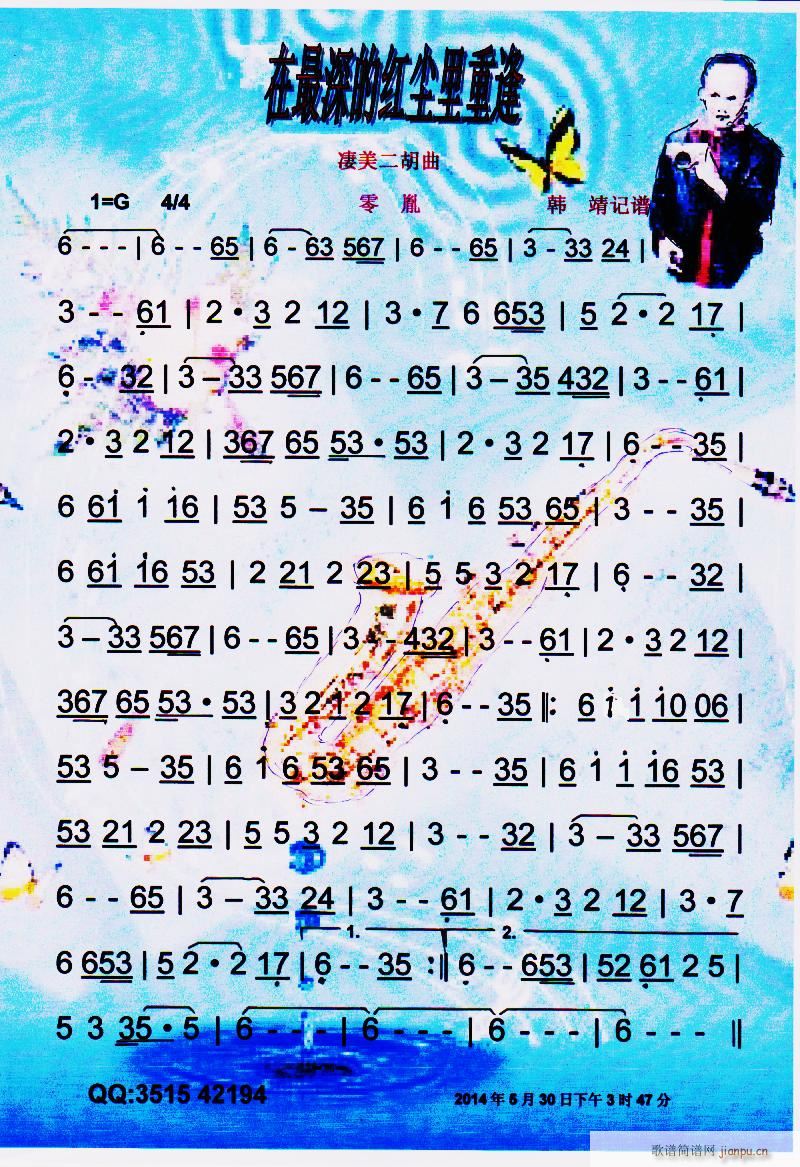 在最深的红尘里重逢
凄美二胡曲
1=G 4/4 零 胤 韩 靖记谱
6 - - - | 6 - - 65 | 6 - 63 567 | 6 - - 65 | 3 - 33 24 |
3 - - 61 | 2 · 3 2 12 | 3 · 7 6 653 | 5 2 · 2 17 |
6 - - 32 | 3 – 33 567 | 6 - - 65 | 3 – 35 432 | 3 - - 61 |
2 · 3 2 12 | 367 65 53 · 53 | 2 · 3 2 17 | 6 - - 35 |
6 61̇ 1̇ 1̇6 | 53 5 – 35 | 6 1̇ 6 53 65 | 3 - - 35 |
6 61̇ 1̇6 53 | 2 21 2 23 | 5 5 3 2 17 | 6 - - 32 |
3 – 33 567 | 6 - - 65 | 3 - - 432 | 3 - - 61 | 2 · 3 2 12 |
367 65 53 · 53 | 3 2 1 2 17 | 6 - - 35 ‖: 6 1̇ 1̇ 1̇0 06 |
53 5 – 35 | 6 1̇ 6 53 65 | 3 - - 35 | 6 1̇ 1̇ 1̇6 53 |
53 21 2 23 | 5 5 3 2 12 | 3 - - 32 | 3 – 33 567 |
6 - - 65 | 3 – 33 24 | 3 - - 61 | 2 · 3 2 12 | 3 · 7
1. 2.
6 653 | 5 2 · 2 17 | 6 - - 35 :‖ 6 - - 653 | 52 61 2 5 |
5 3 35 · 5 | 6 - - - | 6 - - - | 6 - - - | 6 - - - ‖
QQ:3515 42194 2014 年 5 月 30 日下午 3 时 47 分
歌谱简谱网 jianpu.cn